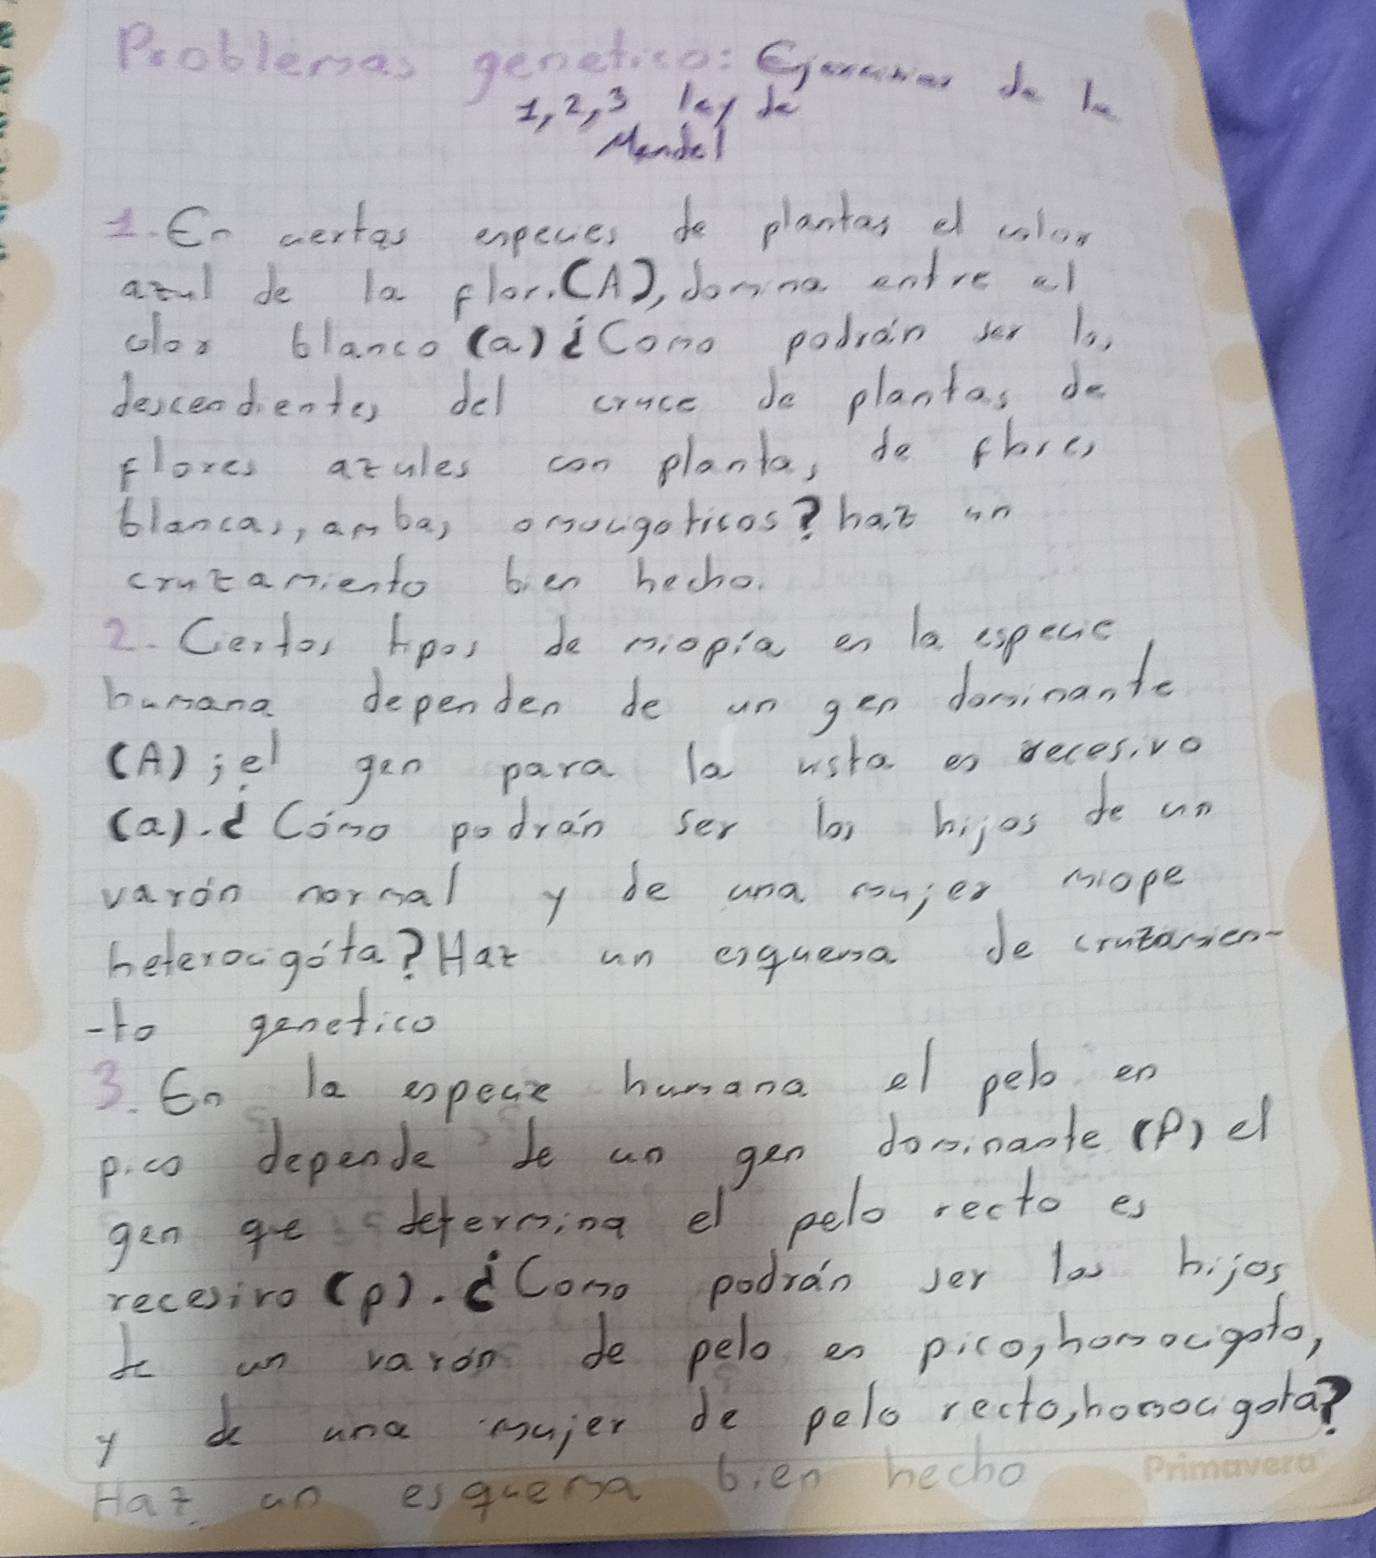 Problemas genetico: Ejercicios de la
1, 2, 3 ley de
Mendel
1. En ciertas especies de plantas el color
azul de la flor. (A), domina entre el
color blanco (a) ¿Como podrán ser los
descendientes del cruce de plantas de
flores azules con plantas de flores
blancas, ambas omocigoticos? haz un
cruzamiento bien hecho.
2. Ciertos tipos de miopía en la especie
humana dependen de un gen dominante
(A); el gen para la vista es recesivo
(a). ¿Cómo podrán ser los hijos de un
varón normal y de una mujer miope
heterocigóta? Haz un esquema de cruzamien-
-to genetico
3. En la especie humana el pelo en
pico depende de un gen dominante (P) el
gen qe determina el pelo recto es
recesivo (p). ¿Como podrán ser los hijos
de un varón de pelo en pico, homocigoto,
y de una mujer de pelo recto, homocigota?
Haz un esquema bien hecho
Primavera